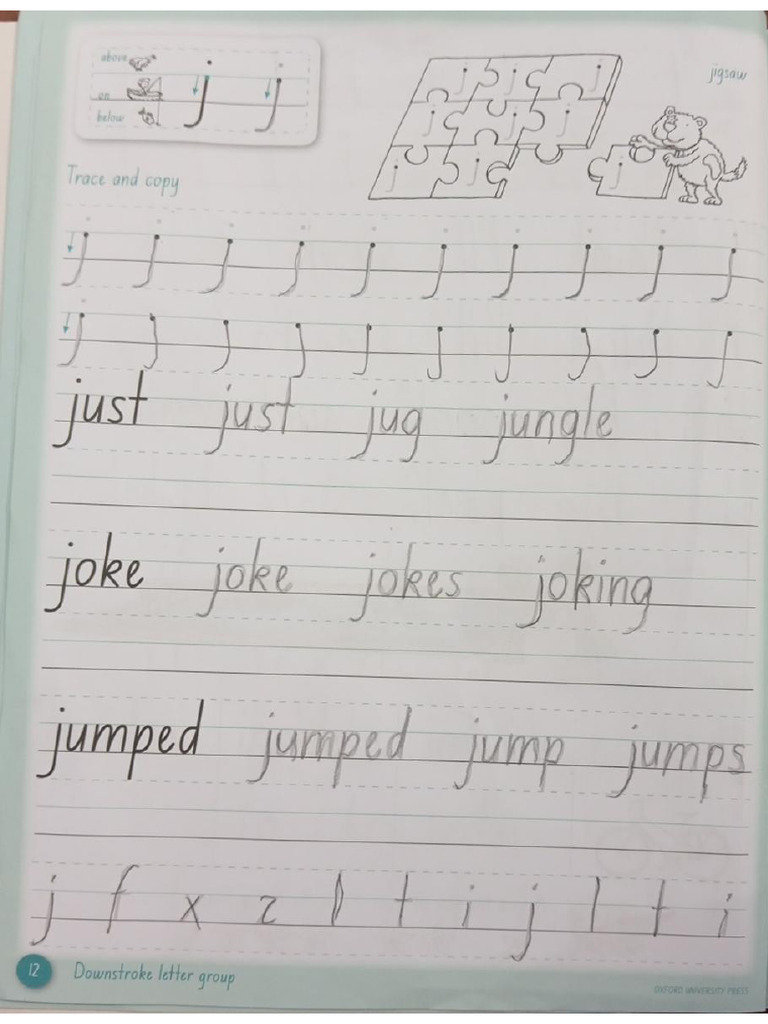 above
on
below
j j
j j j
j j j
j j j
jigsaw
Trace and copy
j j j j j j j j j j
j j j j j j j j j j
just just jug jungle
joke joke jokes joking
jumped jumped jump jumps
j f x z l t i j l t i
12 Downstroke letter group
OXFORD UNIVERSITY PRESS